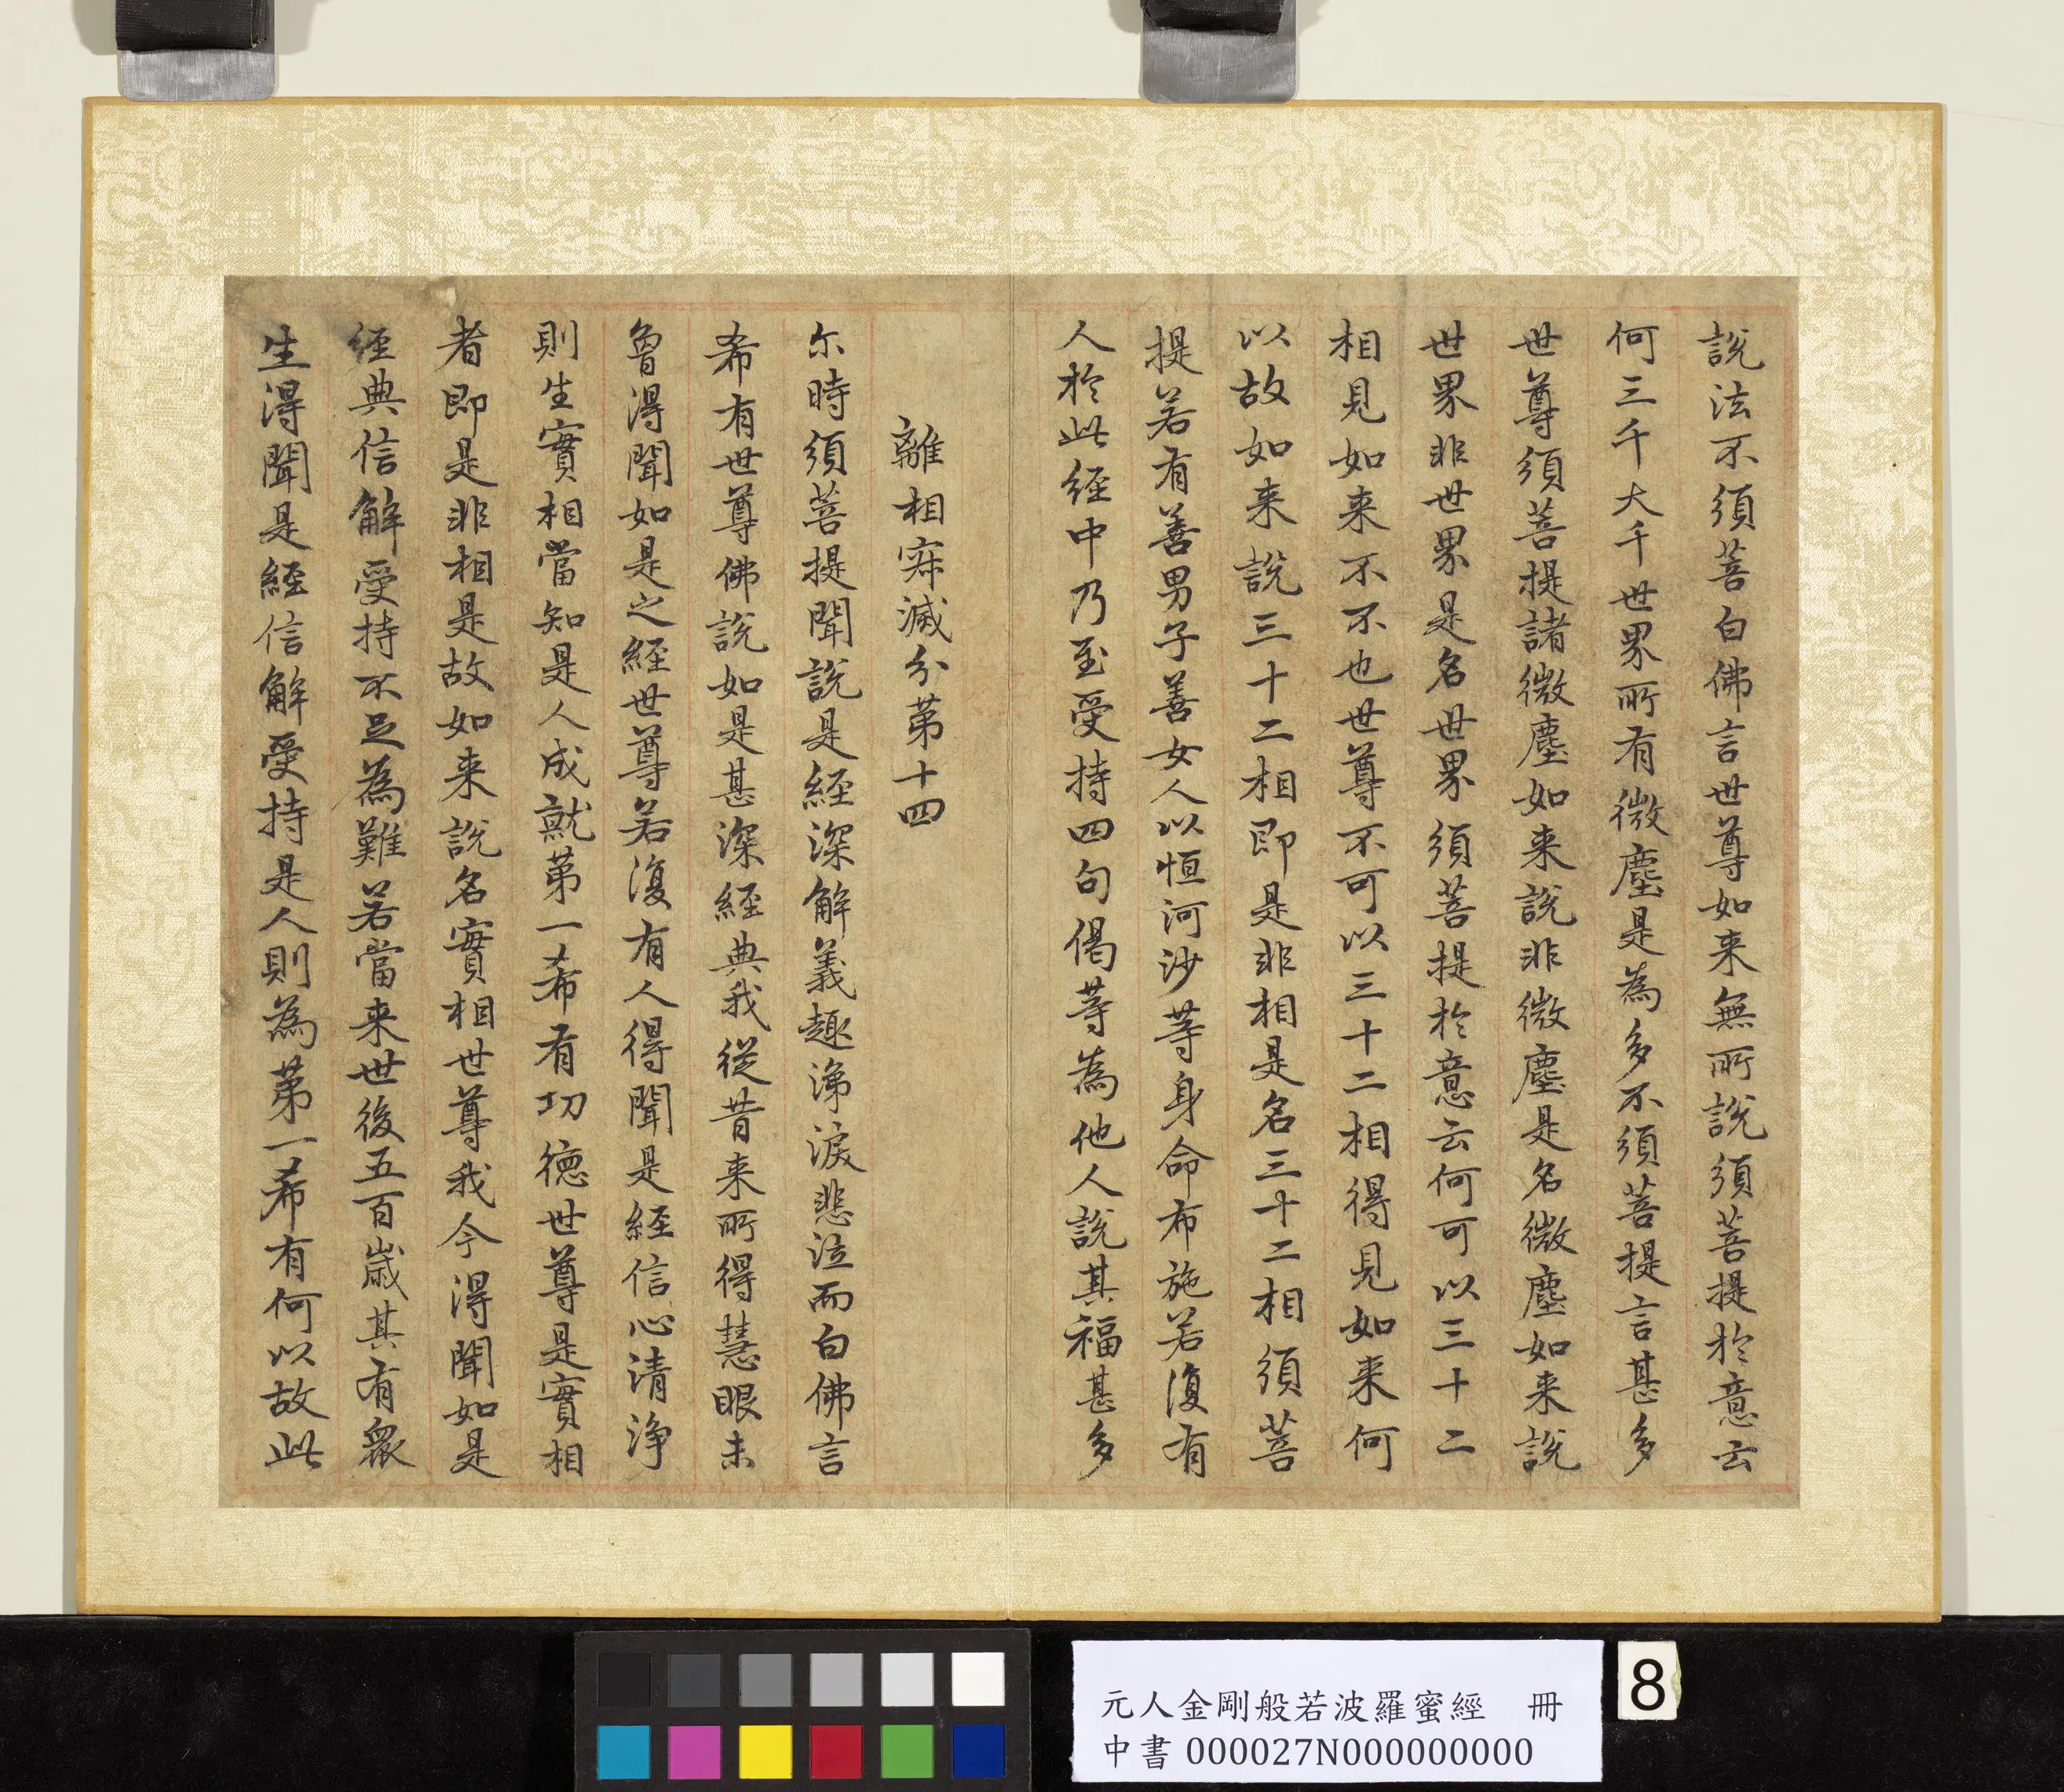 說法不須菩白佛言世尊如来無所說須菩提於意云
何三千大千世界所有微塵是為多不須菩提言甚多
世尊須菩提諸微塵如来說非微塵是名微塵如来說
世界非世界是名世界須菩提於意云何可以三十二
相見如来不不也世尊不可以三十二相得見如来何
以故如来說三十二相即是非相是名三十二相須菩
提若有善男子善女人以恒河沙等身命布施若復有
人於此經中乃至受持四句偈等為他人說其福甚多
離相寂滅分第十四
尔時須菩提聞說是經深解義趣涕淚悲泣而白佛言
希有世尊佛說如是甚深經典我從昔来所得慧眼未
曾得聞如是之經世尊若復有人得聞是經信心清淨
則生實相當知是人成就第一希有功德世尊是實相
者即是非相是故如来說名實相世尊我今得聞如是
經典信解受持不足為難若當来世後五百歲其有衆
生得聞是經信解受持是人則為第一希有何以故此
元人金剛般若波羅蜜經 冊
中書 000027N000000000
8